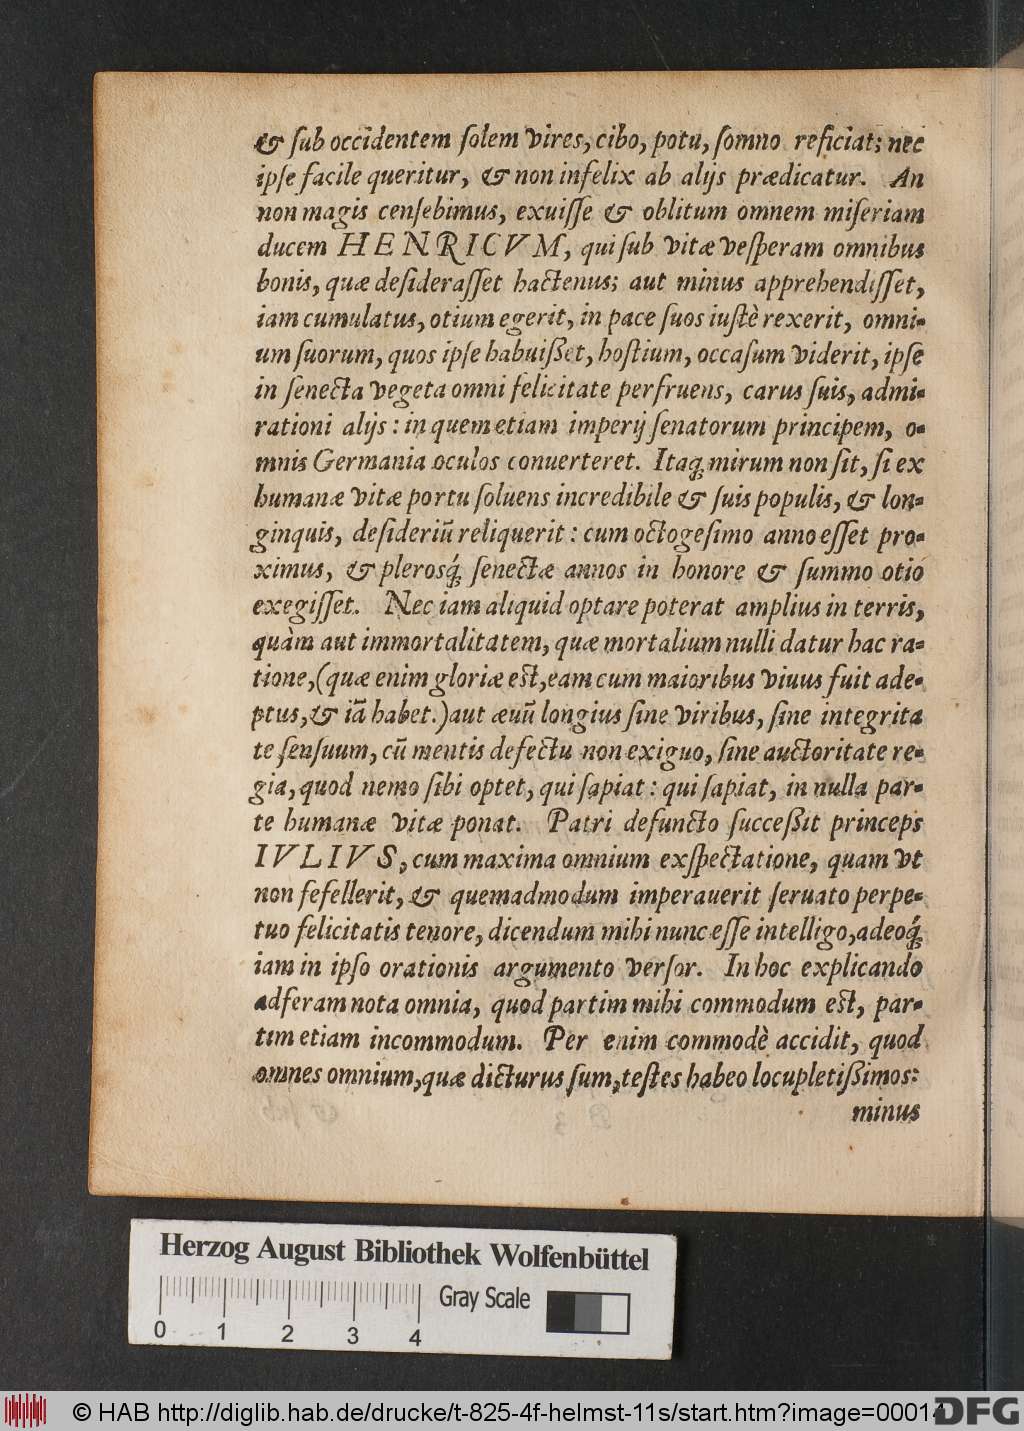 & ſub occidentem ſolem vires, cibo, potu, ſomno reficiat; nec
ipſe facile queritur, & non infelix ab alijs prædicatur. An
non magis cenſebimus, exuiſſe & oblitum omnem miſeriam
ducem HENRICVM, qui ſub vitæ veſperam omnibus
bonis, quæ deſideraſſet hactenus; aut minus apprehendiſſet,
iam cumulatus, otium egerit, in pace ſuos iuſtè rexerit, omni-
um ſuorum, quos ipſe habuiſſet, hoſtium, occaſum viderit, ipſe
in ſenecta vegeta omni felicitate perfruens, carus ſuis, admi-
rationi alijs: in quem etiam imperij ſenatorum principem, o-
mnis Germania oculos conuerteret. Itaq́; mirum non ſit, ſi ex
humanæ vitæ portu ſoluens incredibile & ſuis populis, & lon-
ginquis, deſideriũ reliquerit: cum octogeſimo anno eſſet pro-
ximus, & plerosq́; ſenectæ annos in honore & ſummo otio
exegiſſet. Nec iam aliquid optare poterat amplius in terris,
quàm aut immortalitatem, quæ mortalium nulli datur hac ra-
tione, (quæ enim gloriæ eſt, eam cum maioribus viuus fuit ade-
ptus, & iã habet.) aut æuũ longius ſine viribus, ſine integrita
te ſenſuum, cũ mentis defectu non exiguo, ſine auctoritate re-
gia, quod nemo ſibi optet, qui ſapiat: qui ſapiat, in nulla par-
te humanæ vitæ ponat. Patri defuncto ſucceßit princeps
IVLIVS, cum maxima omnium exſpectatione, quam vt
non fefellerit, & quemadmodum imperauerit ſeruato perpe-
tuo felicitatis tenore, dicendum mihi nunc eſſe intelligo, adeoq́;
iam in ipſo orationis argumento verſor. In hoc explicando
adferam nota omnia, quod partim mihi commodum eſt, par-
tim etiam incommodum. Per enim commodè accidit, quod
omnes omnium, quæ dicturus ſum, teſtes habeo locupletißimos:
minus
Herzog August Bibliothek Wolfenbüttel
Gray Scale
0 1 2 3 4
© HAB http://diglib.hab.de/drucke/t-825-4f-helmst-11s/start.htm?image=00014
DFG